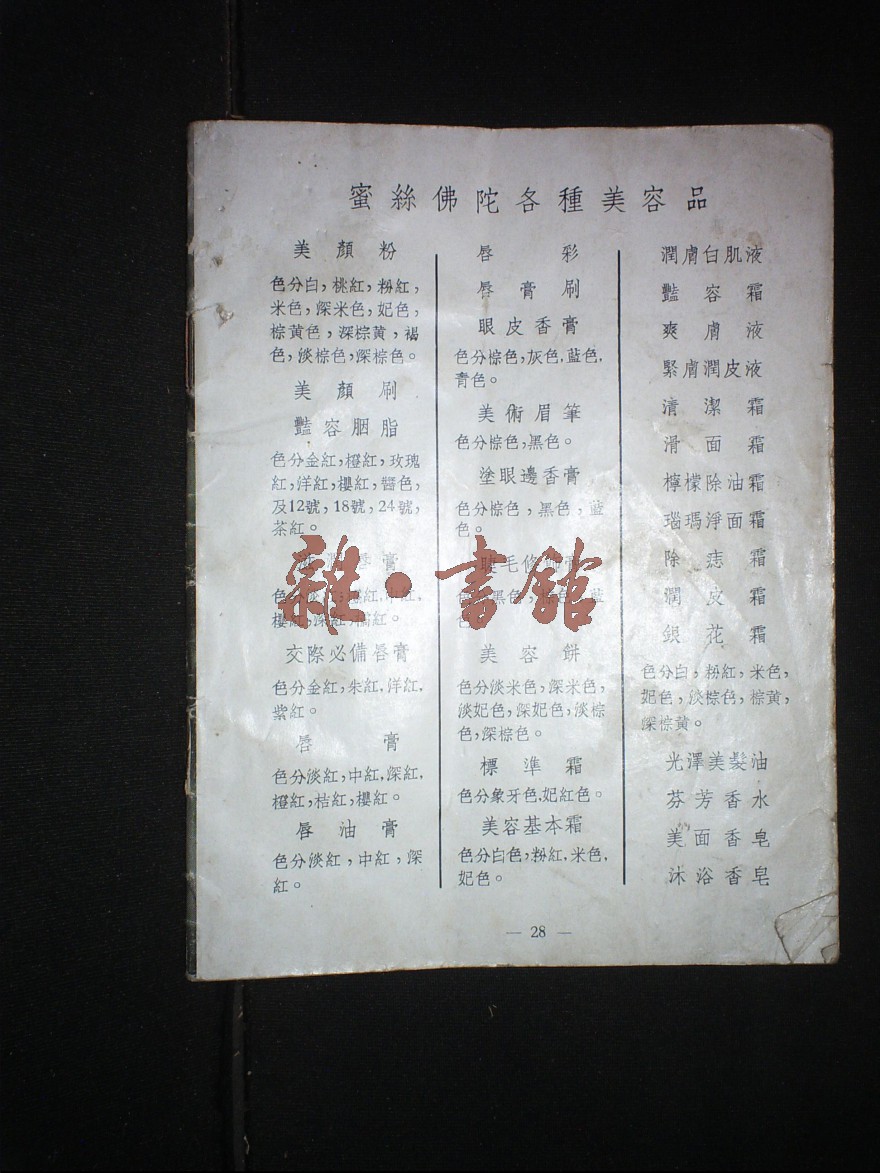 蜜絲佛陀各種美容品
美顏粉
色分白，桃紅，粉紅，
米色，深米色，妃色，
棕黃色，深棕黃，褐
色，淡棕色，深棕色。
美顏刷
豔容胭脂
色分金紅，橙紅，玫瑰
紅，洋紅，櫻紅，醬色，
及12號，18號，24號，
茶紅。
膏
櫻紅，深紅，橘紅。
交際必備唇膏
色分金紅，朱紅，洋紅，
紫紅。
唇膏
色分淡紅，中紅，深紅，
橙紅，桔紅，櫻紅。
唇油膏
色分淡紅，中紅，深
紅。
唇彩
唇膏刷
眼皮香膏
色分棕色，灰色，藍色，
青色。
美術眉筆
色分棕色，黑色。
塗眼邊香膏
色分棕色，黑色，藍
色。
睫毛修飾膏
黑色，棕色，藍
美容餅
色分淡米色，深米色，
淡妃色，深妃色，淡棕
色，深棕色。
標準霜
色分象牙色，妃紅色。
美容基本霜
色分白色，粉紅，米色，
妃色。
潤膚白肌液
豔容霜
爽膚液
緊膚潤皮液
清潔霜
滑面霜
檸檬除油霜
瑙瑪淨面霜
除痣霜
潤皮霜
銀花霜
色分白，粉紅，米色，
妃色，淡棕色，棕黃，
深棕黃。
光澤美髮油
芬芳香水
美面香皂
沐浴香皂
— 28 —
雜·書館